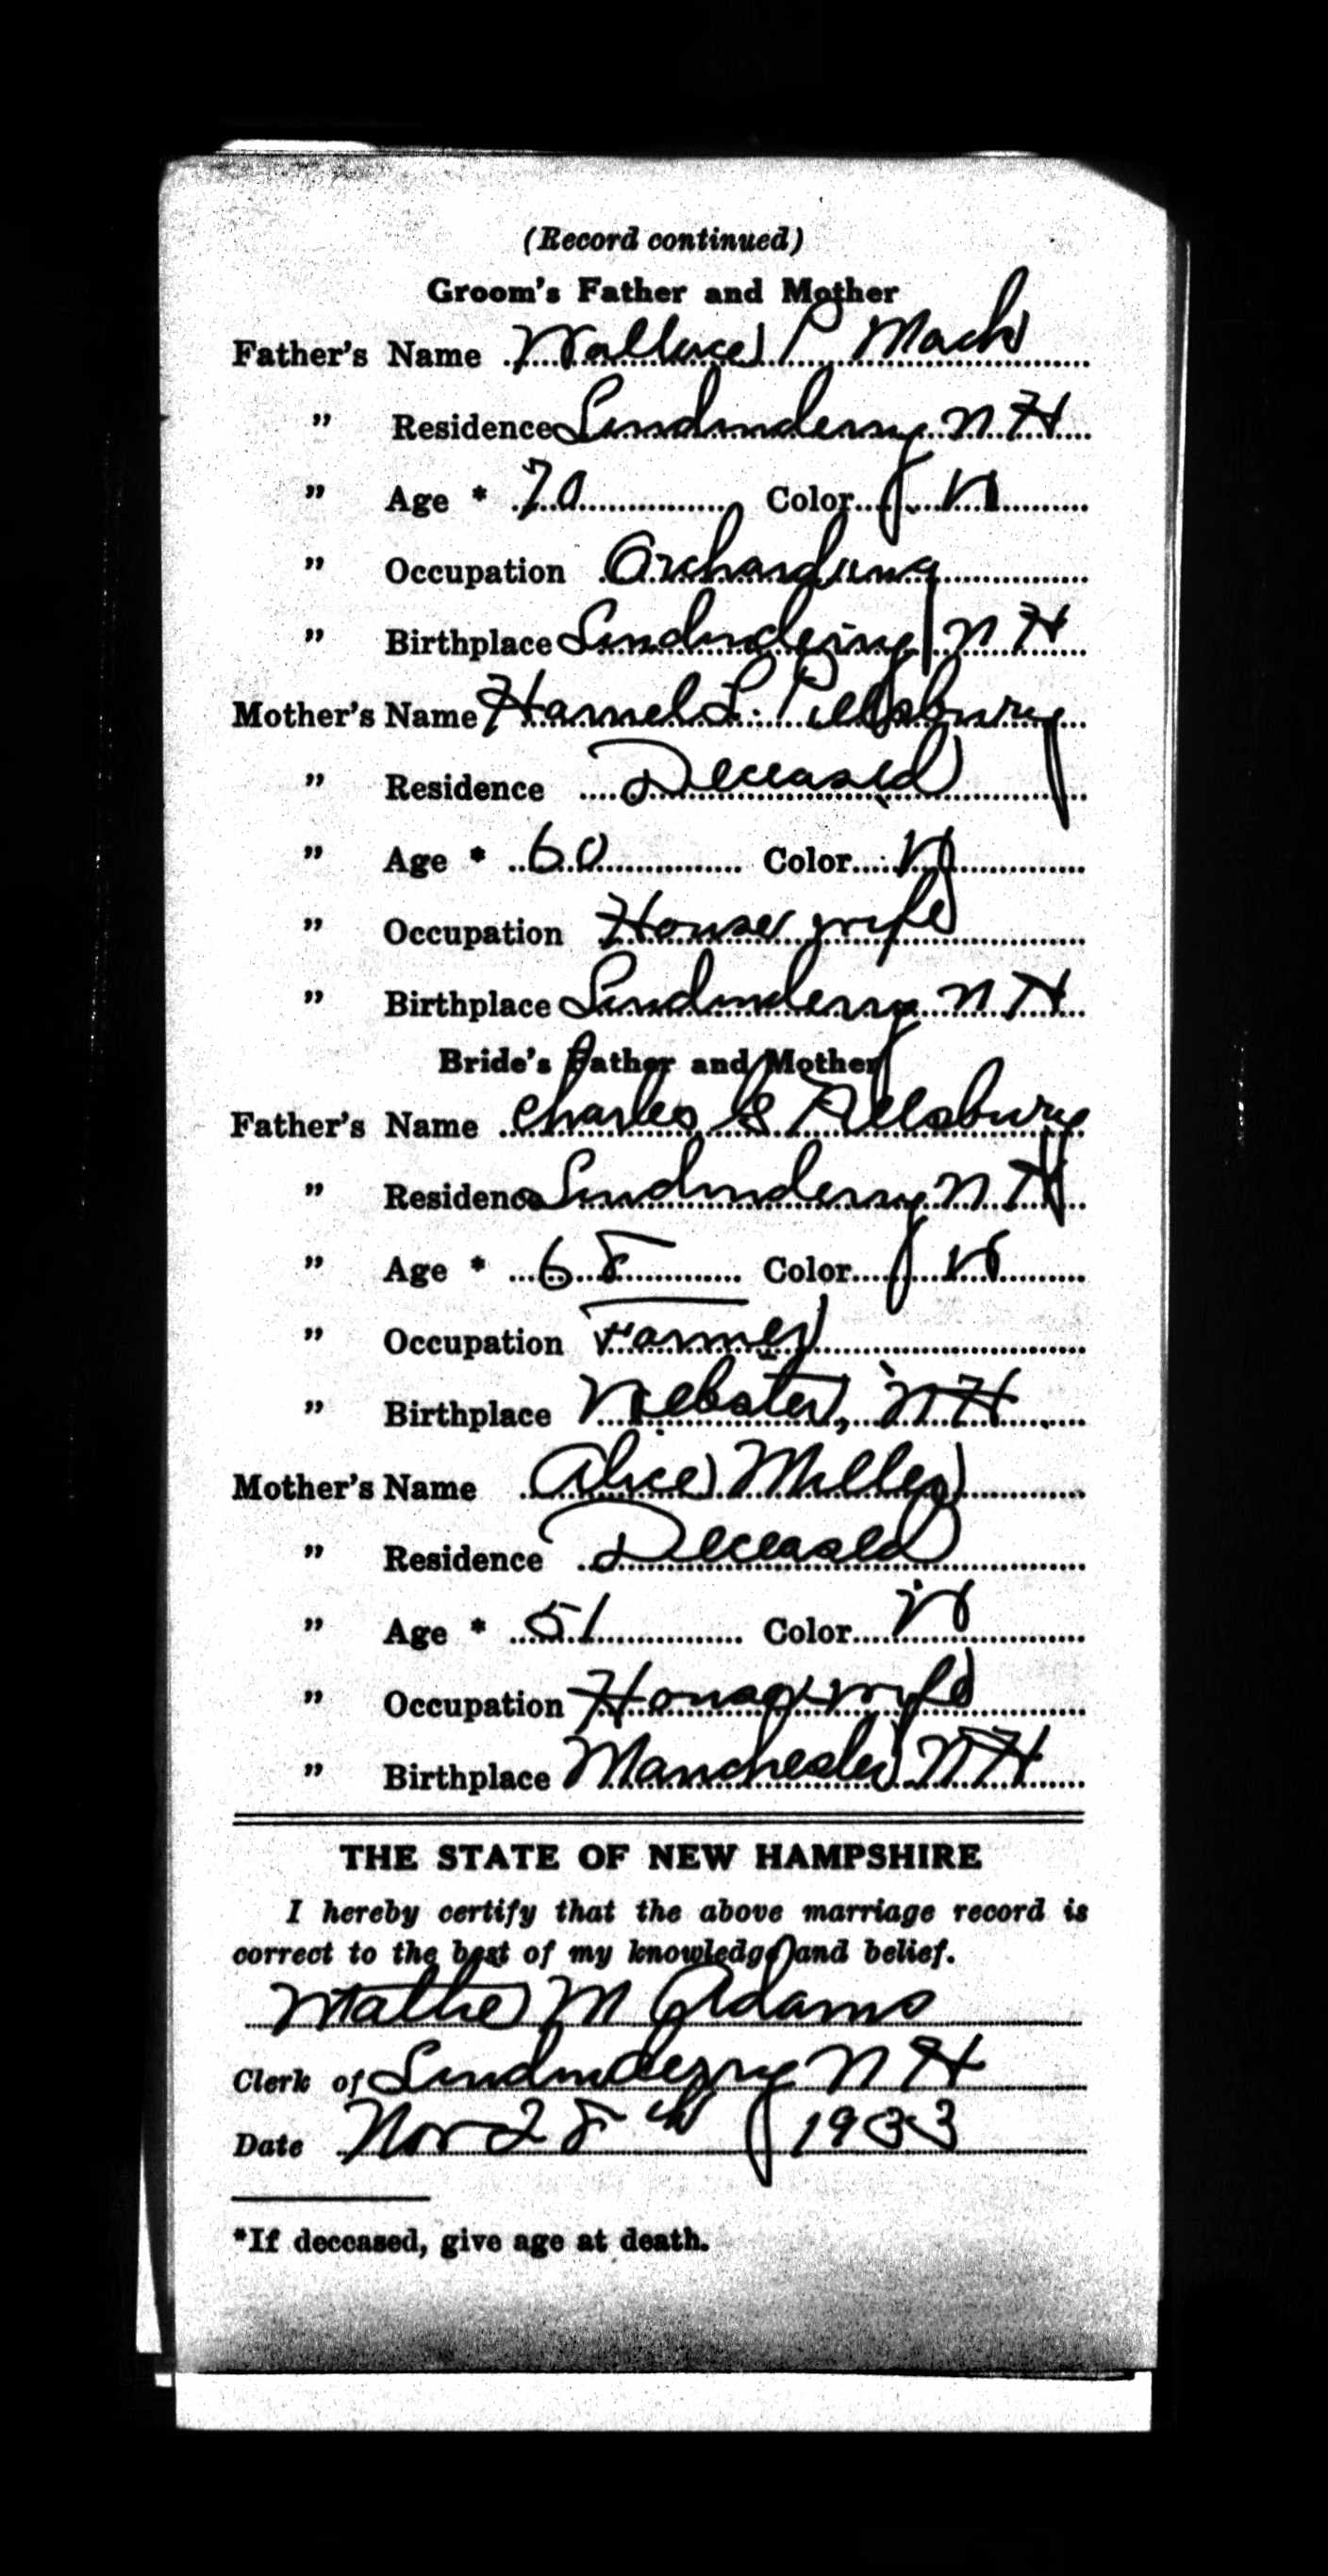 (Record continued)
Groom's Father and Mother
Father's Name Wallace P Mack
" Residence Londonderry N H
" Age * 70 Color W
" Occupation Orcharding
" Birthplace Londonderry N H
Mother's Name L. Pillsbury
" Residence Deceased
" Age * 60 Color W
" Occupation House wife
" Birthplace Londonderry N H
Bride's Father and Mother
Father's Name Charles S Pillsbury
" Residence Londonderry N H
" Age * 68 Color W
" Occupation Farmer
" Birthplace Webster, N H
Mother's Name Alice Miller
" Residence Deceased
" Age * 51 Color W
" Occupation House wife
" Birthplace Manchester N H
THE STATE OF NEW HAMPSHIRE
I hereby certify that the above marriage record is
correct to the best of my knowledge and belief.
Mattie M Adams
Clerk of Londonderry N H
Date Nov 28 th 1933
*If deceased, give age at death.